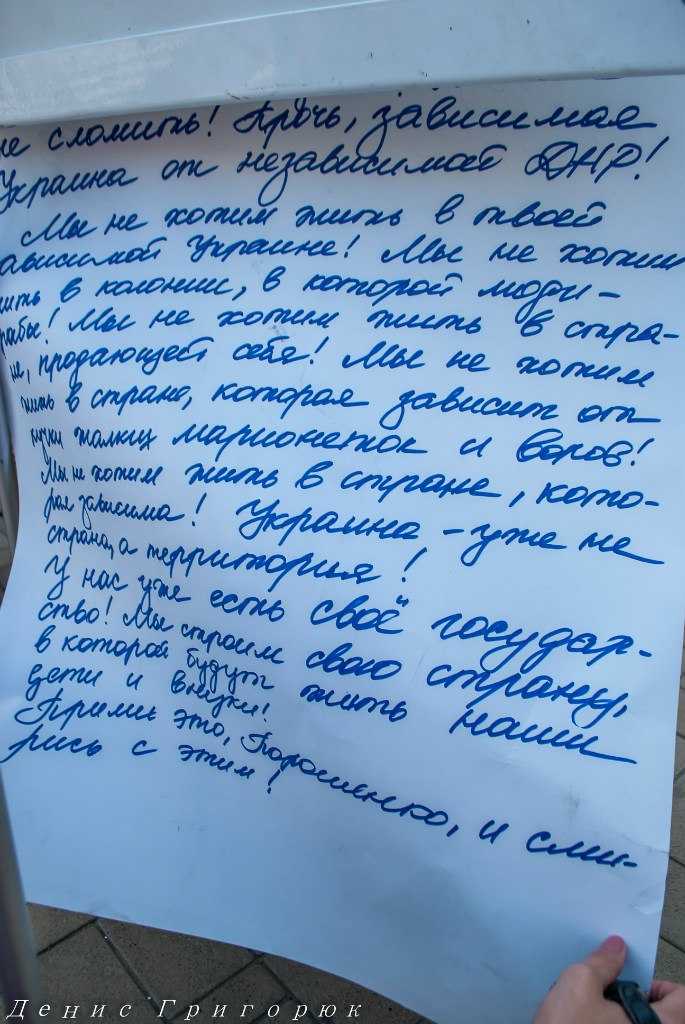 не сломить! Прочь, зависимая
Украина от независимой ДНР!
Мы не хотим жить в твоей
зависимой Украине! Мы не хотим
жить в колонии, в которой люди-
рабы! Мы не хотим жить в стра-
не, продающей себя! Мы не хотим
жить в стране, которая зависит от
кучки жалких марионеток и воров!
Мы не хотим жить в стране, кото-
рая зависима! Украина - уже не
страна, а территория!
У нас уже есть своё государ-
ство! Мы строим свою страну,
в которой будут жить наши
дети и внуки!
Прими это, Порошенко, и сми-
рись с этим!
Денис Григорюк